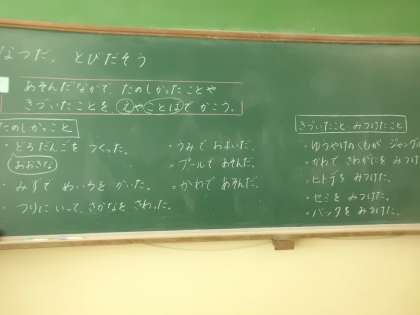 なつだ、とびだそう
あそんだなかで、たのしかったことや
きづいたことを えやことばでかこう。
たのしかったこと
・どろだんごをつくった。
おおきな
・みずで めいろをかいた。
・つりにいって、さかなをさわった。
・うみでおよいだ。
・プールであそんだ。
・かわであそんだ。
きづいたこと みつけたこと
・ゆうやけのくもが
・かわでさわがにをみつけ
・ヒトデをみつけた。
・セミをみつけた。
・バッタをみつけた。